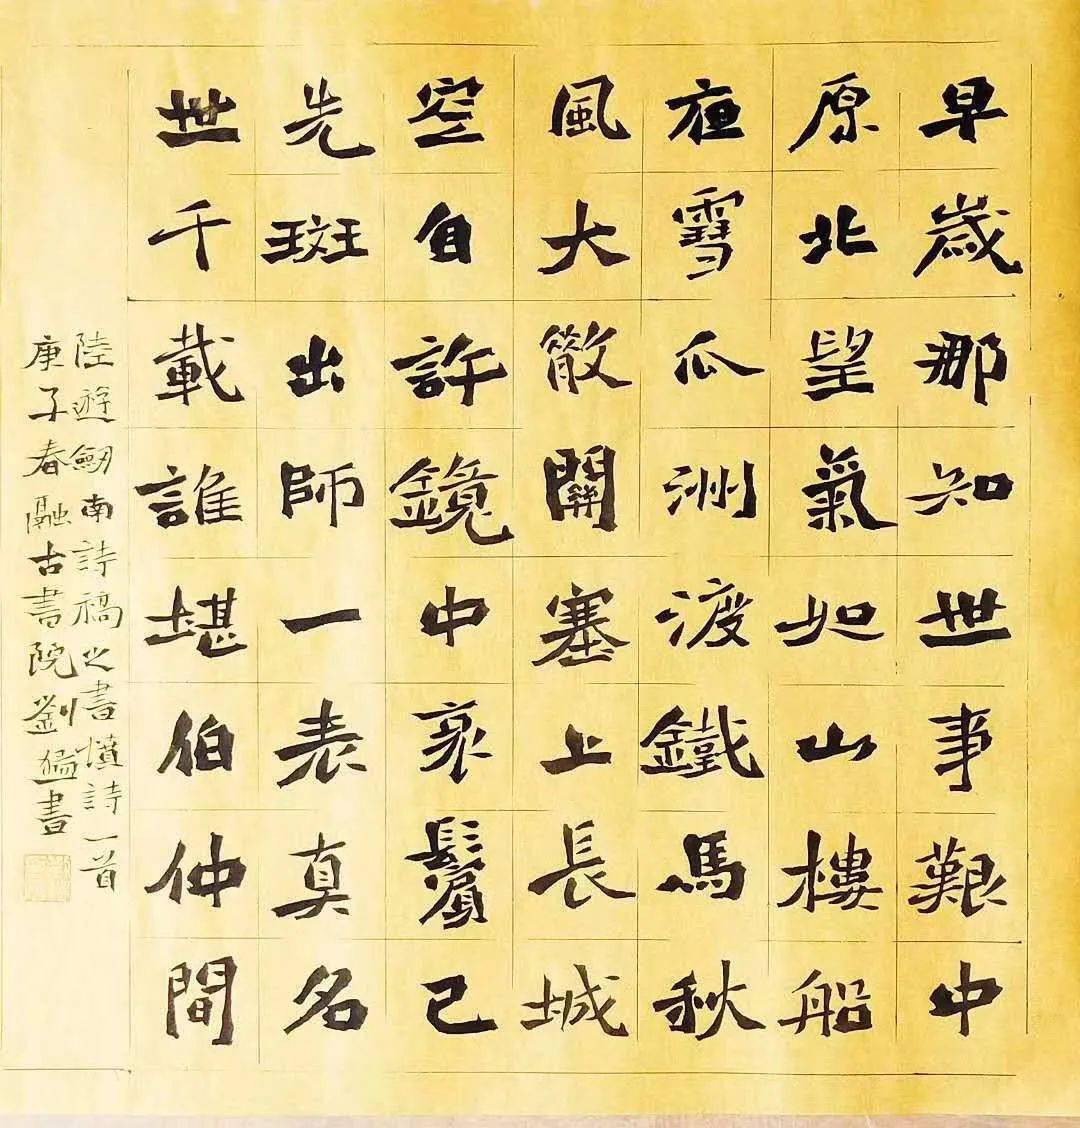 早歲那知世事艱中
原北望氣如山樓船
夜雪瓜洲渡鐵馬秋
風大散關塞上長城
空自許鏡中衰鬢已
先斑出師一表真名
世千載誰堪伯仲間
陸遊劒南詩稿之書憤詩一首
庚子春融古書院劉書